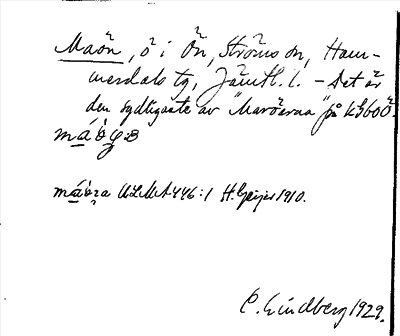 Maön, ö i Ön, Ströms sn, Ham-
merdals tg, Jämtl. l. – Det är
den sydligaste av "Maröarna" på kbl 60 Ö.
máö
mára ULMA 446:1 H. Geijer 1910.
C. Lindberg 1929.